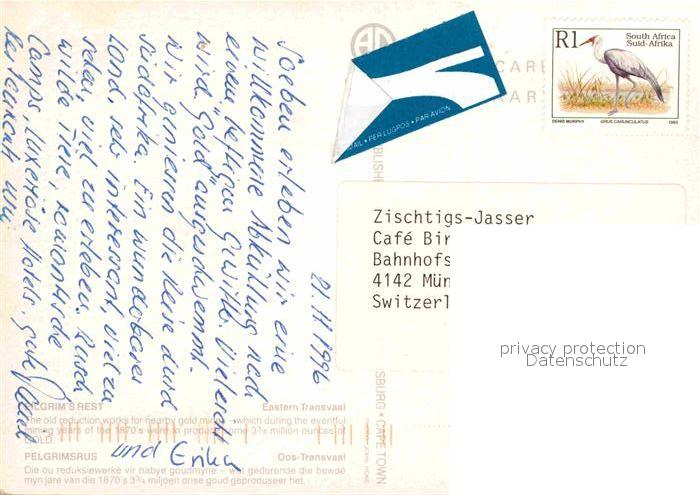 21.11.1996
Soeben erleben wir eine
willkommene Abkühlung nach
einem heftigen Gewitter. Vielerorts
wird "Gold" ausgeschwemmt.
Wir geniessen die Reise durch
Südafrika. Ein wunderbares
Land, sehr interessant, viel zu
sehen, viel zu erleben. Busch
wilde Tiere, romantische
Camps, luxeriöse Hotels, gute
und Erika
R1
South Africa
Suid-Afrika
DENIS MURPHY GRUS CARUNCULATUS 1993
AIL • PER LUGPOS • PAR AVION
Zischtigs-Jasser
Café Bir
Bahnhofs
4142 Mün
Switzerl
privacy protection
Datenschutz
PILGRIM'S REST Eastern Transvaal
The old reduction works for nearby gold mines – which during the eventful
mining years of the 1870's were to produce some 3¾ million ounces of
GOLD.
PELGRIMSRUS Oos-Transvaal
Die ou reduksiewerke vir nabye goudmyne – wat gedurende die bewoë
myn jare van die 1870's 3¾ miljoen onse goud geproduseer het.
SBURG • CAPE TOWN